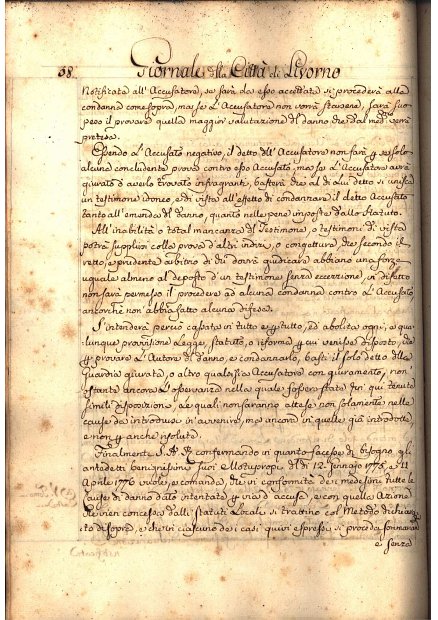 38. Giornale della Città di Livorno
Notificata all' Accusatore, se sarà da esso accettata si procederà alla
condanna come sopra, ma se l'Accusatore non vorrà starsene, sarà suo
peso il provare quella maggior valutazione di danno che dal med.mo verrà
pretesa.
Essendo l'Accusato negativo, il detto dell'Accusatore non farà per se solo
alcuna concludente prova contro esso Accusato, ma se l'Accusatore avrà
giurato d'averlo trovato infragranti, basterà che al di lui detto si unisca
un testimone idoneo, e di vista all'effetto di condannare il detto Accusato
tanto all'emenda del danno, quanto nelle pene imposte dallo Statuto.
All'inabilità o total mancanza del Testimone, o testimoni di vista
potrà supplirsi colla prova d'altri indizi, o congetture che secondo il
retto, e prudente arbitrio di chi dovrà giudicare abbiano una forza
uguale almeno al deposto d'un testimone senza eccezzione, in difetto
non sarà permesso il procedere ad alcuna condanna contro l'Accusato,
ancorchè non abbia fatto alcuna difesa.
S'intenderà perciò cassata in tutto e per tutto, ed abolita ogni, e qua-
lunque provvisione Legge, statuto, o riforma per cui venisse disposto, che
per provare l'Autore di danno, e condannarlo, basti il solo detto della
Guardia giurata, o altro qualsisia Accusatore con giuramento, non
ostante ancora l'osservanza nella quale fossero state fin qui tenute
simili disposizioni, le quali non saranno attese non solamente nelle
cause da introdursi in avvenire, ma ancora in quelle già introdotte,
e non per anche risolute.
Finalmente S. A. R. confermando in quanto facesse di bisogno gli
antedetti benignissimi suoi Motupropri del dì 12. Gennajo 1775, e 11
Aprile 1776 vuole, e comanda, che in conformità dei medesimi tutte le
cause di danno dato intentate per via di accusa, e con quella Azione
che vien concessa dalli statuti Locali si trattino col Metodo dichiara-
to di sopra, e che in ciascuno dei casi quivi espressi si proceda sommariam.te
e senza